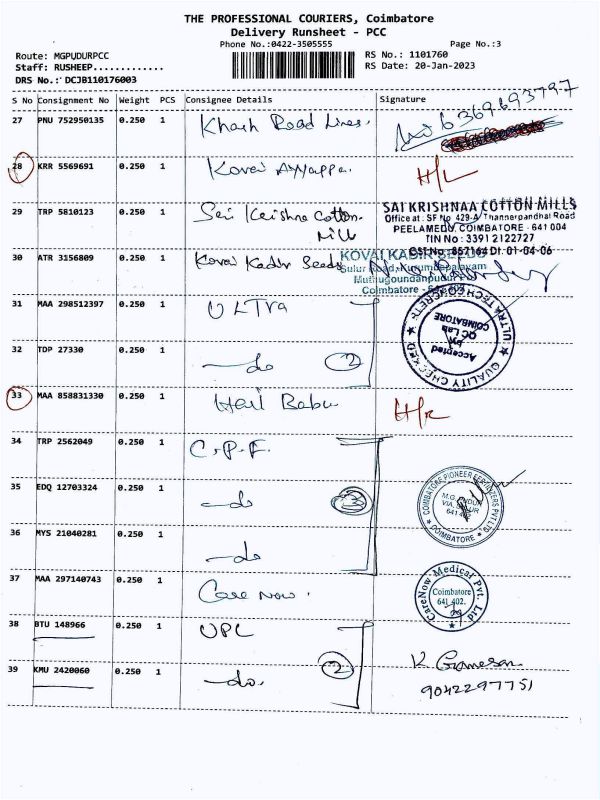 THE PROFESSIONAL COURIERS, Coimbatore
Delivery Runsheet - PCC
Phone No.:0422-3505555 Page No.:3
Route: MGPUDURPCC RS No.: 1101760
Staff: RUSHEEP............. RS Date: 20-Jan-2023
DRS No.: DCJB110176003
S No Consignment No Weight PCS Consignee Details Signature
27 PNU 752950135 0.250 1 Khash Road Lines. 6369693797
28 KRR 5569691 0.250 1 Kovai Ayyappa. H/L
29 TRP 5810123 0.250 1 Sri Krishna Cotton Mills
SAI KRISHNAA COTTON MILLS
Office at : SF No 429-A Thannerpandhal Road
PEELAMEDU, COIMBATORE - 641 004
TIN No : 33912122727
CST No : 857164 Dt. 01-04-06
30 ATR 3156809 0.250 1 Kovai Kadir Seeds
KOVAI KADIR SEEDS
Sulur Road, Kurumbapalayam
Muthugoundanpudur
Coimbatore -
31 MAA 298512397 0.250 1 ULTRA
ULTRA TECH CONCRETE
COIMBATORE
QC Lab
by
Accepted
QUALITY CHECKED
32 TDP 27330 0.250 1 do 2
33 MAA 858831330 0.250 1 Hari Babu H/L
34 TRP 2562049 0.250 1 C.P.F.
35 EDQ 12703324 0.250 1 do 3
COIMBATORE PIONEER FERTILIZERS PVT LTD
M.G. PUDUR
VIA, SULUR
641 402
COIMBATORE
36 MYS 21040281 0.250 1 do
37 MAA 297140743 0.250 1 Care Now.
CareNow Medical Pvt. Ltd
Coimbatore
641 402.
38 BTU 148966 0.250 1 UPL
39 KMU 2420060 0.250 1 do. 2
K Gramesan
9042297751